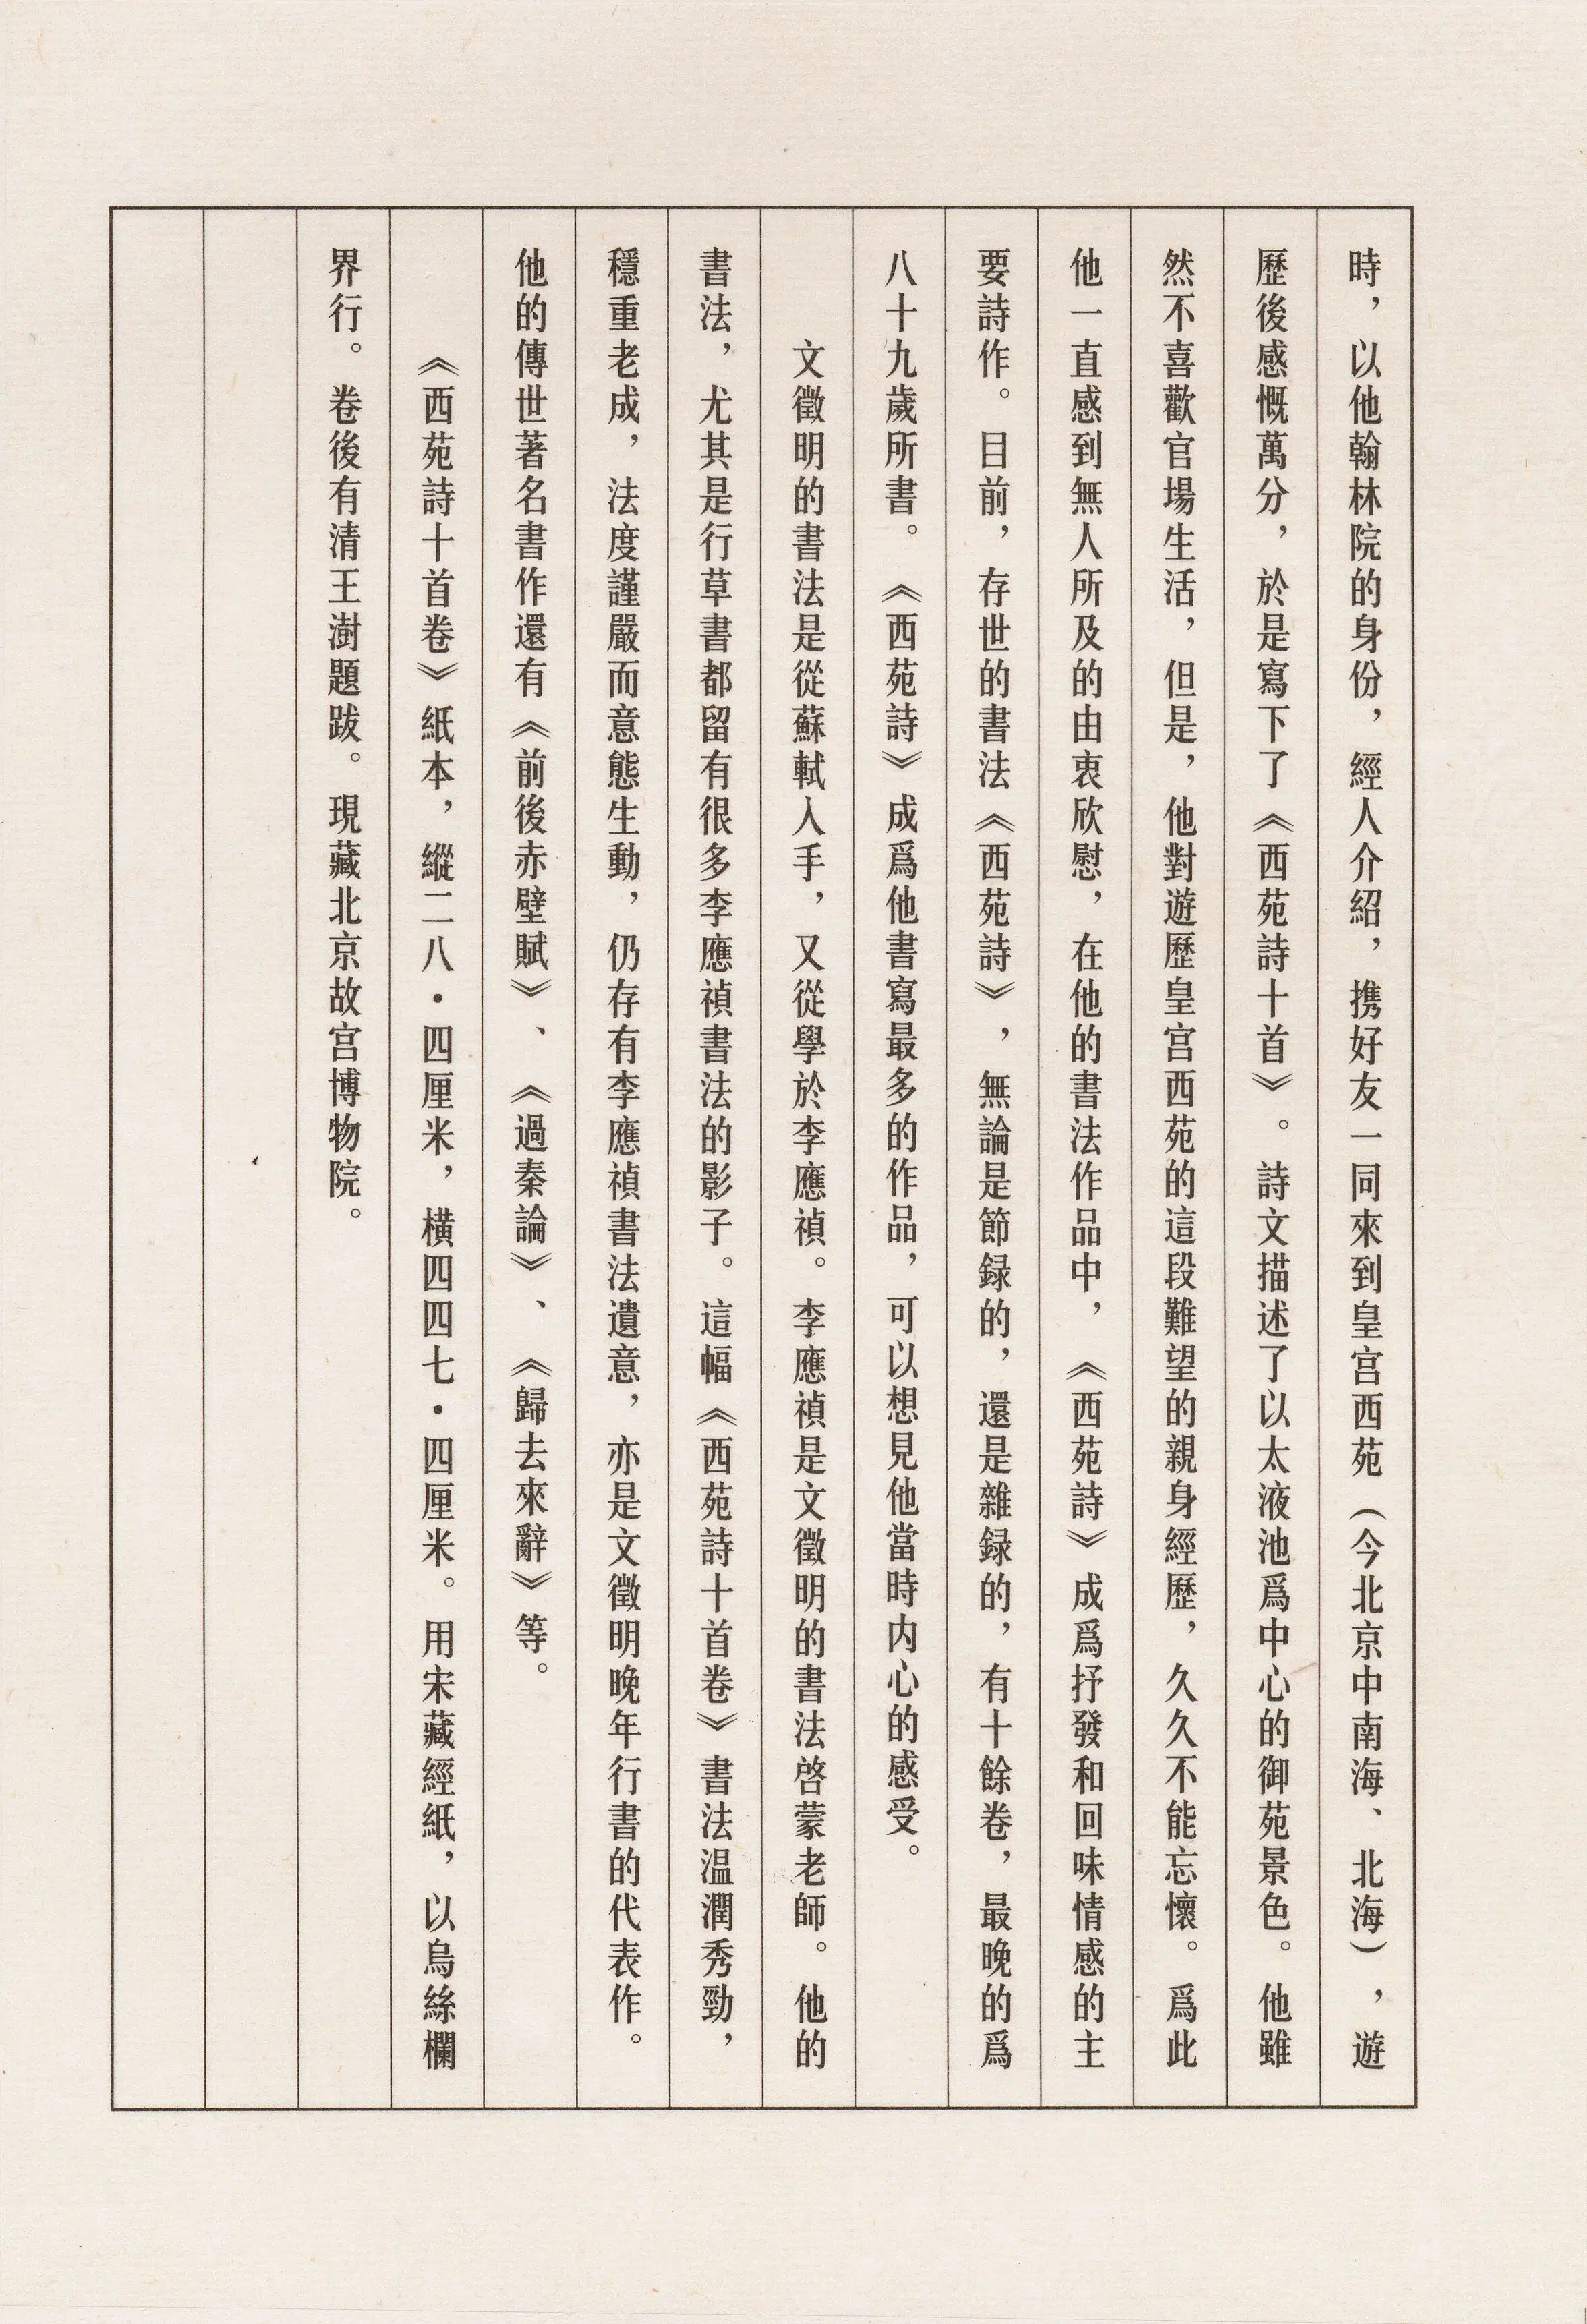 時，以他翰林院的身份，經人介紹，携好友一同來到皇宮西苑（今北京中南海、北海），遊
歷後感慨萬分，於是寫下了《西苑詩十首》。詩文描述了以太液池爲中心的御苑景色。他雖
然不喜歡官場生活，但是，他對遊歷皇宮西苑的這段難望的親身經歷，久久不能忘懷。爲此
他一直感到無人所及的由衷欣慰，在他的書法作品中，《西苑詩》成爲抒發和回味情感的主
要詩作。目前，存世的書法《西苑詩》，無論是節録的，還是雜録的，有十餘卷，最晚的爲
八十九歲所書。《西苑詩》成爲他書寫最多的作品，可以想見他當時内心的感受。
文徵明的書法是從蘇軾人手，又從學於李應禎。李應禎是文徵明的書法啓蒙老師。他的
書法，尤其是行草書都留有很多李應禎書法的影子。這幅《西苑詩十首卷》書法温潤秀勁，
穩重老成，法度謹嚴而意態生動，仍存有李應禎書法遺意，亦是文徵明晚年行書的代表作。
他的傳世著名書作還有《前後赤壁賦》、《過秦論》、《歸去來辭》等。
《西苑詩十首卷》紙本，縱二八·四厘米，橫四四七·四厘米。用宋藏經紙，以烏絲欄
界行。卷後有清王澍題跋。現藏北京故宮博物院。